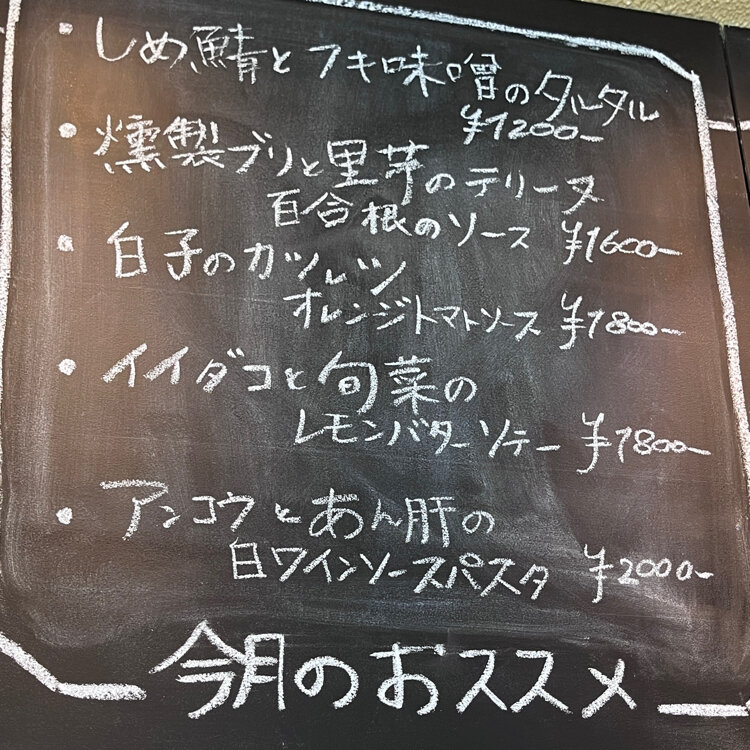 ・しめ鯖とフキ味噌のタルタル
¥1200-
・燻製ブリと里芋のテリーヌ
百合根のソース ¥1600-
・白子のカツレツ
オレンジトマトソース ¥1800-
・イイダコと旬菜の
レモンバターソテー ¥1800-
・アンコウとあん肝の
白ワインソースパスタ ¥2000-
今月のおススメ